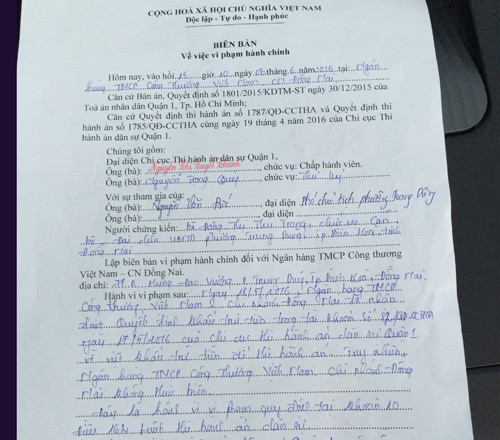 CỘNG HOÀ XÃ HỘI CHỦ NGHĨA VIỆT NAM
Độc lập - Tự do - Hạnh phúc
BIÊN BẢN
Về việc vi phạm hành chính
Hôm nay, vào hồi 15 giờ 10 ngày tháng 6 năm 2016, tại: Ngân
hàng TMCP Công Thương Việt Nam CN Đồng Nai.
Căn cứ Bản án, Quyết định số 1801/2015/KDTM-ST ngày 30/12/2015 của
Toà án nhân dân Quận 1, Tp. Hồ Chí Minh;
Căn cứ Quyết định thi hành án số 1787/QĐ-CCTHA và Quyết định thi
hành án số 1785/QĐ-CCTHA cùng ngày 19 tháng 4 năm 2016 của Chi cục Thi
hành án dân sự Quận 1.
Chúng tôi gồm:
Đại diện Chi cục Thi hành án dân sự Quận 1,
Ông (bà): Nguyễn Thị Tuyết , chức vụ: Chấp hành viên.
Ông (bà): Nguyễn Trọng Quý, chức vụ: Thư ký
Với sự tham gia của:
Ông (bà): Nguyễn Văn , đại diện Phó chủ tịch phường Trung Dũng
Ông (bà): đại diện
Người chứng kiến: Bà Đặng Thị Thu Trang, chức vụ: Cán
bộ - Đại diện UBND phường Trung Dũng, Tp Biên Hoà, tỉnh
Đồng Nai
Lập biên bản vi phạm hành chính đối với Ngân hàng TMCP Công thương
Việt Nam – CN Đồng Nai.
địa chỉ: Hùng Vương, P. Trung Dũng, Tp Biên Hoà, Đồng Nai.
Hành vi vi phạm sau: Ngày /5/2016, Ngân hàng TMCP
Công Thương Việt Nam Chi nhánh Đồng Nai đã nhận
được Quyết định khấu trừ tiền trong tài khoản số /QĐ-CCTHA
ngày /5/2016 của Chi cục thi hành án dân sự Quận 1
về việc khấu trừ tiền để thi hành án. Tuy nhiên,
Ngân hàng TMCP Công Thương Việt Nam Chi nhánh Đồng
Nai không thực hiện.
Đây là hành vi vi phạm quy định tại khoản 10
Điều Luật thi hành án dân sự.